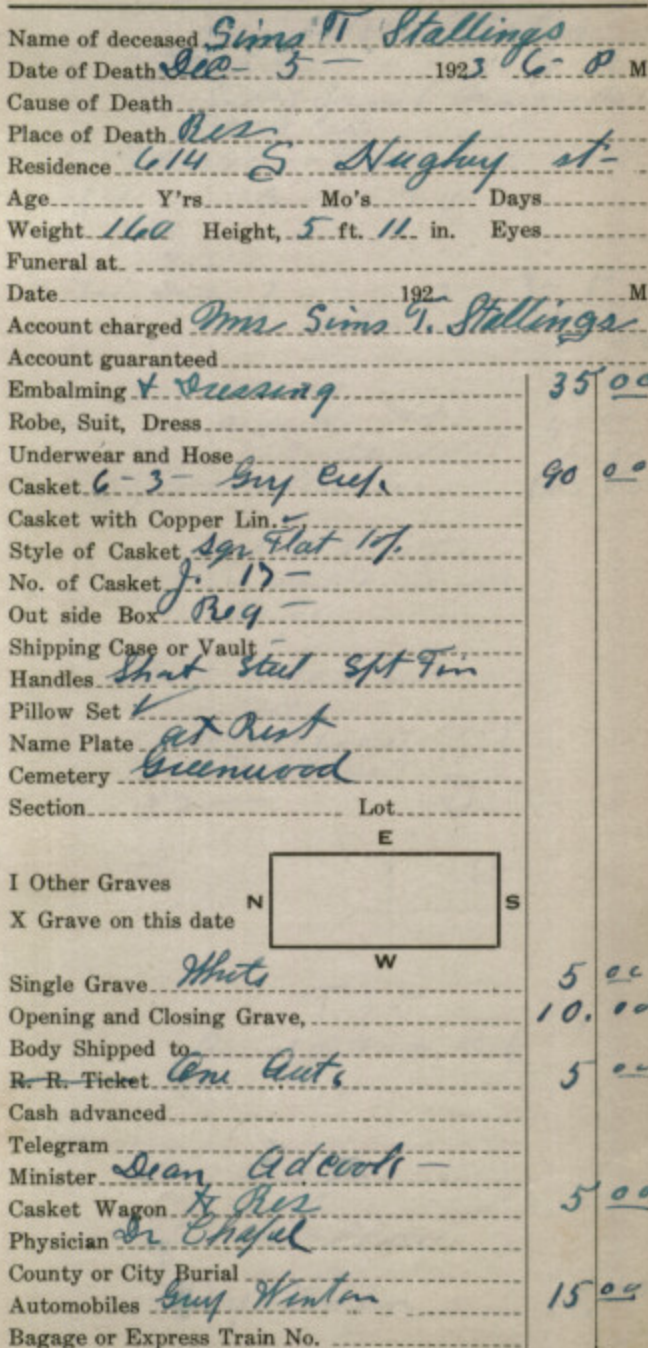 Name of deceased Sims T Stallings
Date of Death Dec - 5 - 1923 6 - P M
Cause of Death
Place of Death Res
Residence 614 S Hughey st-
Age Y'rs Mo's Days
Weight 160 Height, 5 ft. 11 in. Eyes
Funeral at
Date 192 M
Account charged Mrs Sims T. Stallings
Account guaranteed
Embalming & Dressing 35 00
Robe, Suit, Dress
Underwear and Hose
Casket 6-3- Gry 90 00
Casket with Copper Lin.
Style of Casket Sqr Flat
No. of Casket J. 17 -
Out side Box Reg -
Shipping Case or Vault -
Handles Short Steel
Pillow Set ✓
Name Plate at Rest
Cemetery Greenwood
Section Lot
E
I Other Graves
N S
X Grave on this date
W
Single Grave White 5 00
Opening and Closing Grave, 10. 00
Body Shipped to
R. R. Ticket One Auto 5 00
Cash advanced
Telegram
Minister Dean Adcock -
Casket Wagon to Res 5 00
Physician Dr
County or City Burial
Automobiles Gray Winton 15 00
Bagage or Express Train No.